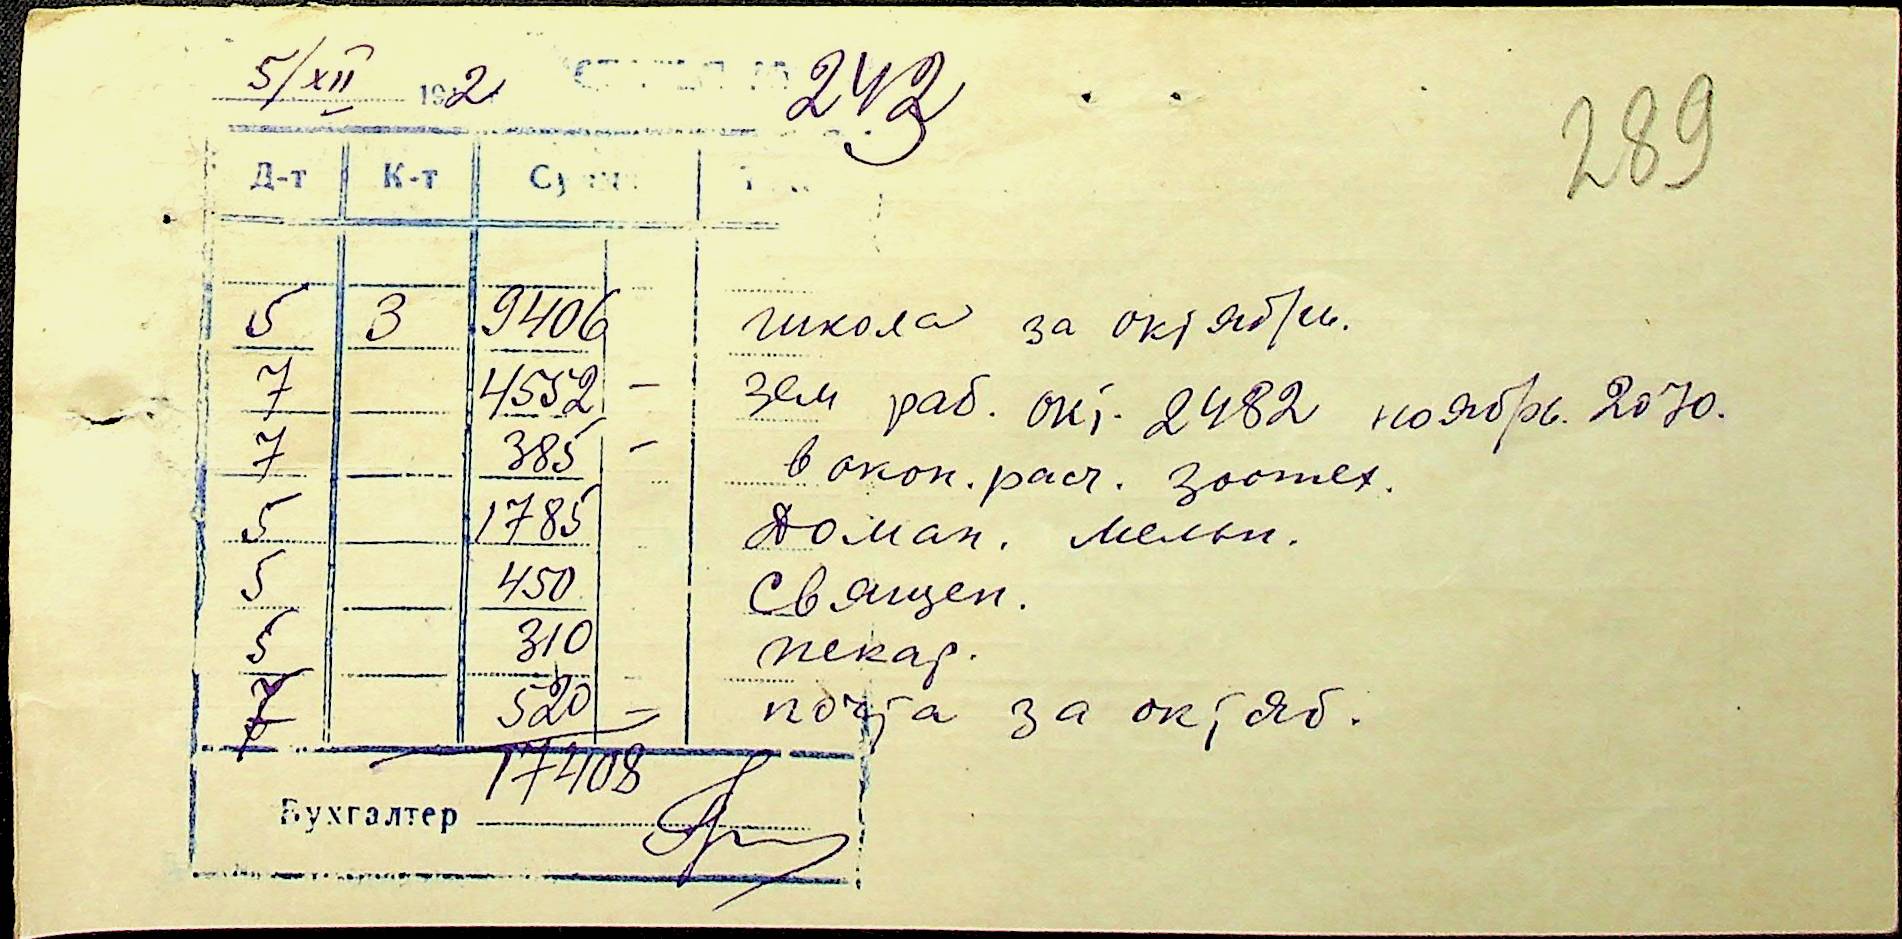 5/XII 19 2 242
289
Д-т К-т
5 3 9406 школа за октябрь.
7 4552 – зем раб. окт. 2482 ноябрь. 2070.
7 385 – в окон. расч. зоотех.
5 1785 Доман. мельн.
5 450 Священ.
5 310 пекар.
7 520 – почта за октяб.
17408
Бухгалтер